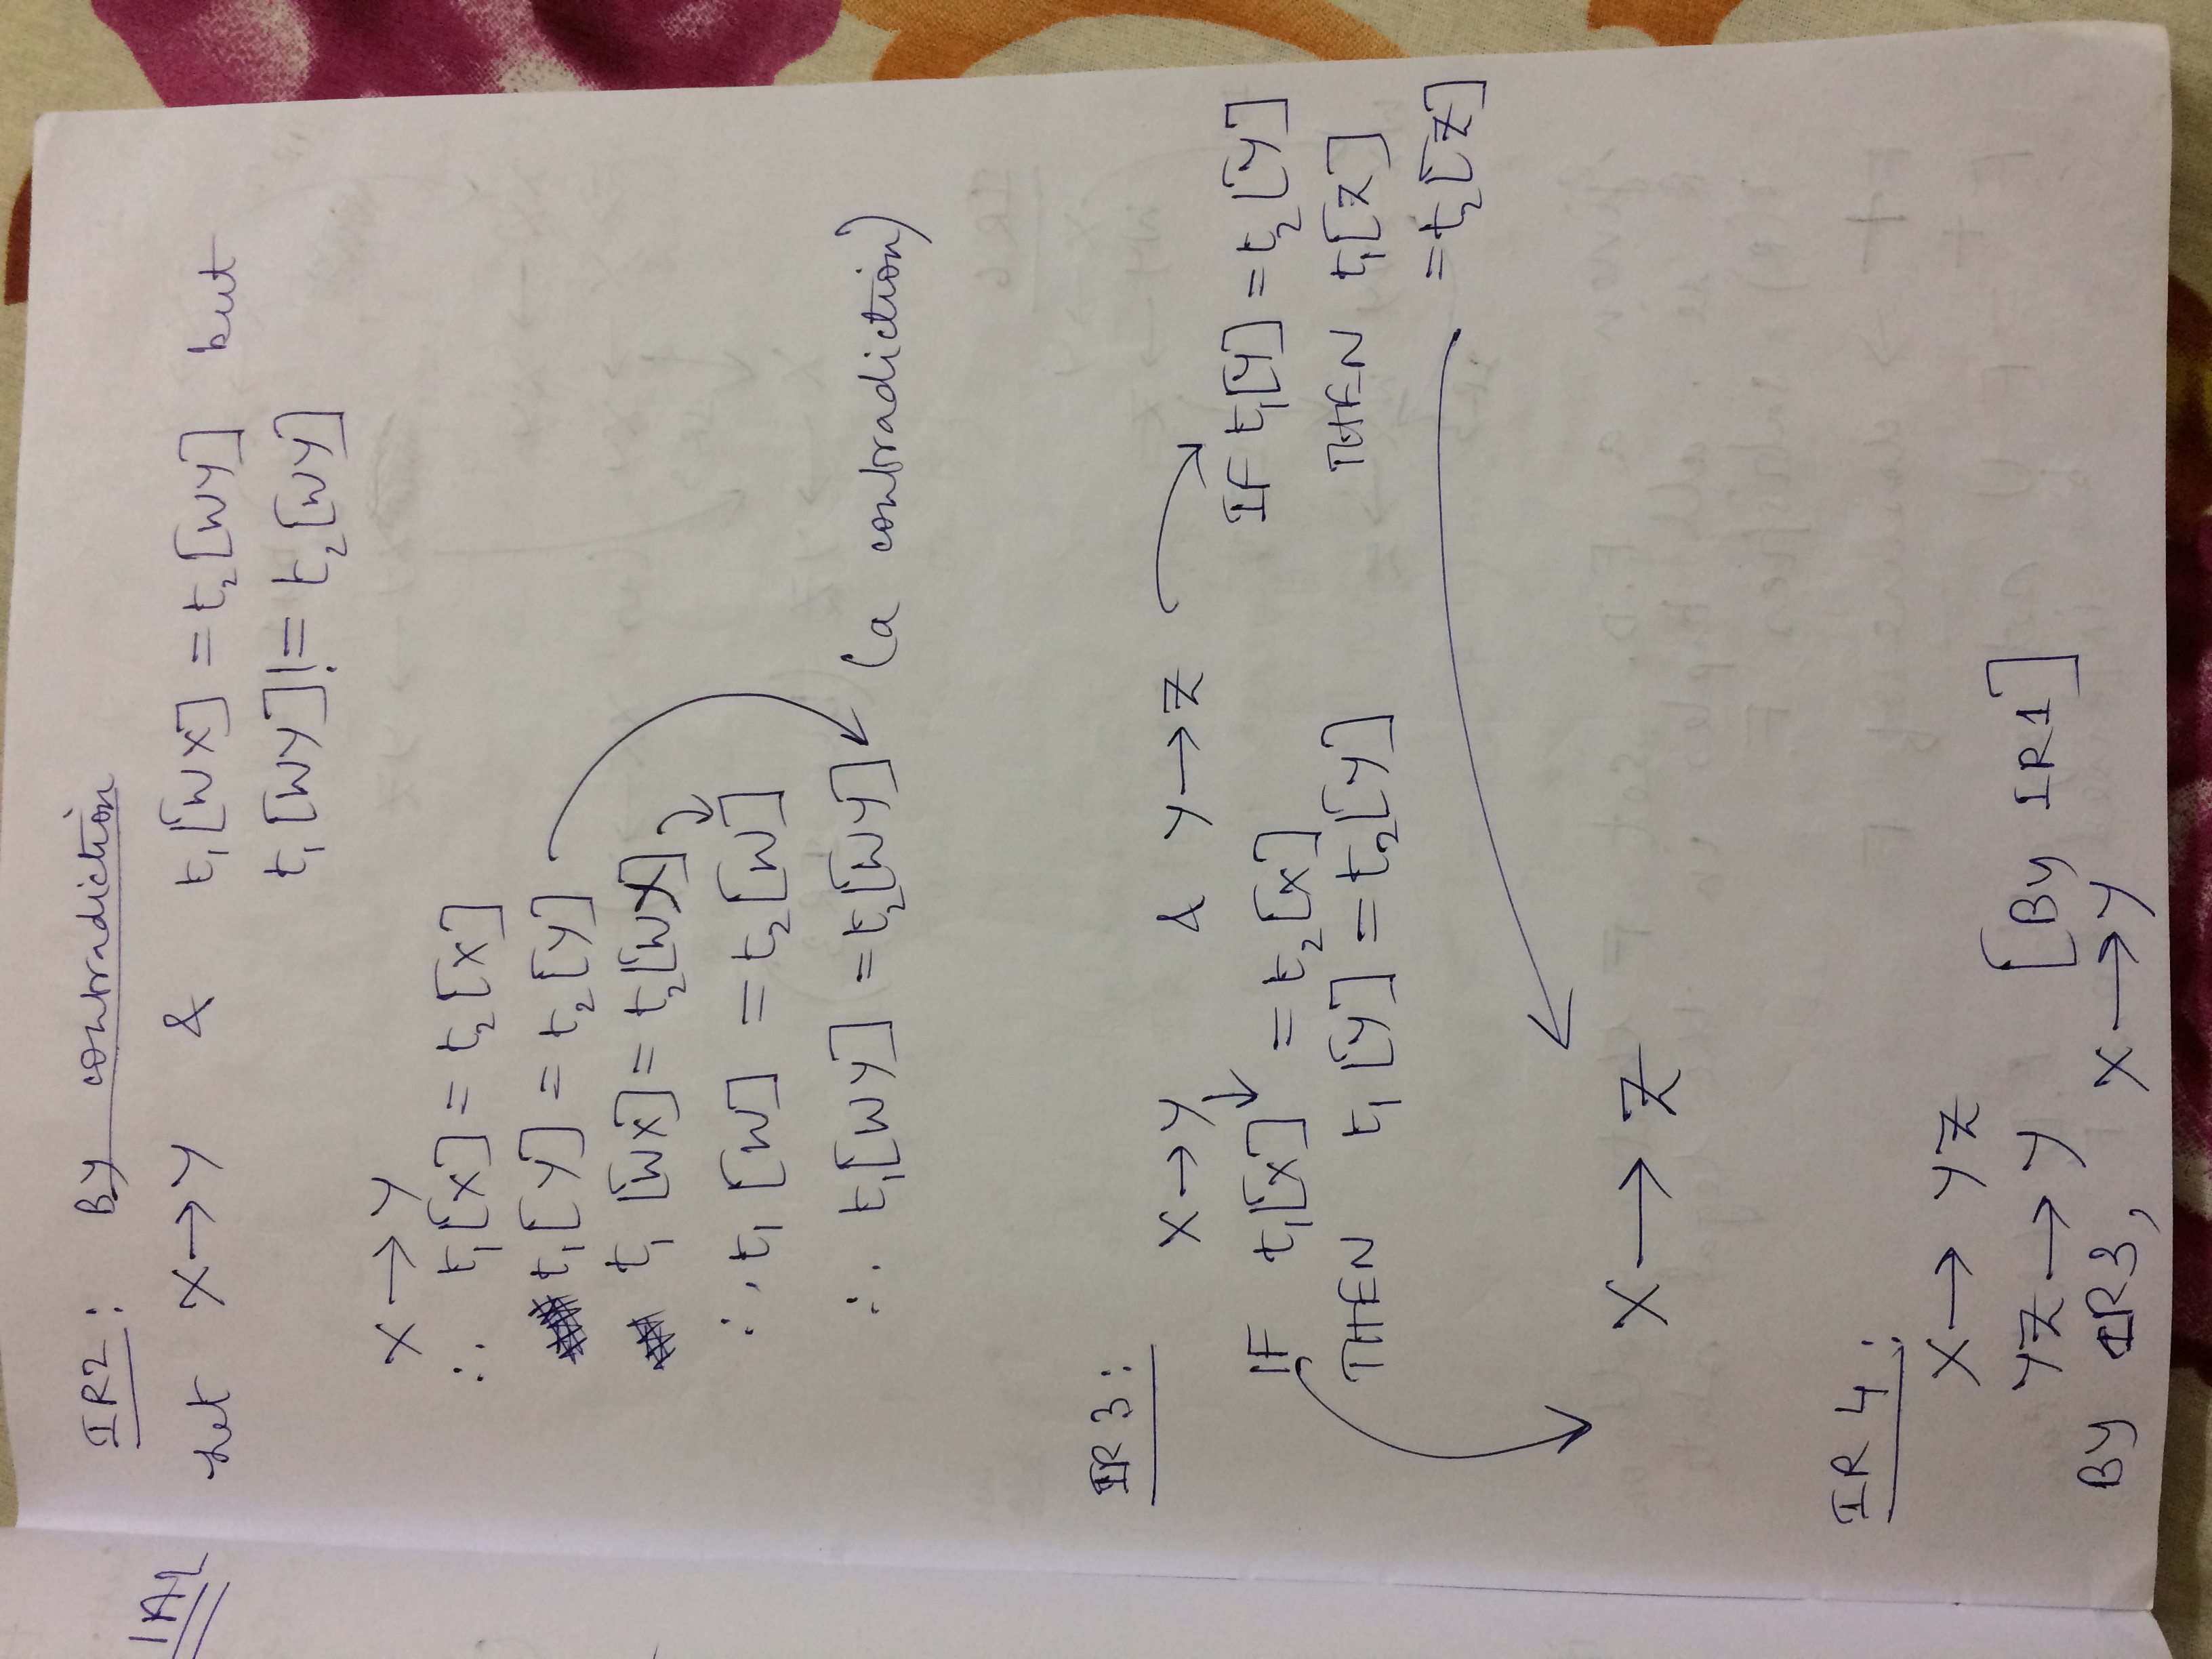 IR2: By contradiction
Let X→Y & t₁[WX] = t₂[WY] but
t₁[WY] != t₂[WY]
X→Y
∴ t₁[X] = t₂[X]
t₁[Y] = t₂[Y]
t₁[WX] = t₂[WX]
∴ t₁[W] = t₂[W]
∴ t₁[WY] = t₂[WY] (a contradiction)
IR3:
X→Y & Y→Z
IF t₁[X] = t₂[X]
THEN t₁[Y] = t₂[Y]
IF t₁[Y] = t₂[Y]
THEN t₁[Z]
= t₂[Z]
X→Z
IR4:
X→YZ
YZ→Y [By IR1]
BY IR3, X→Y